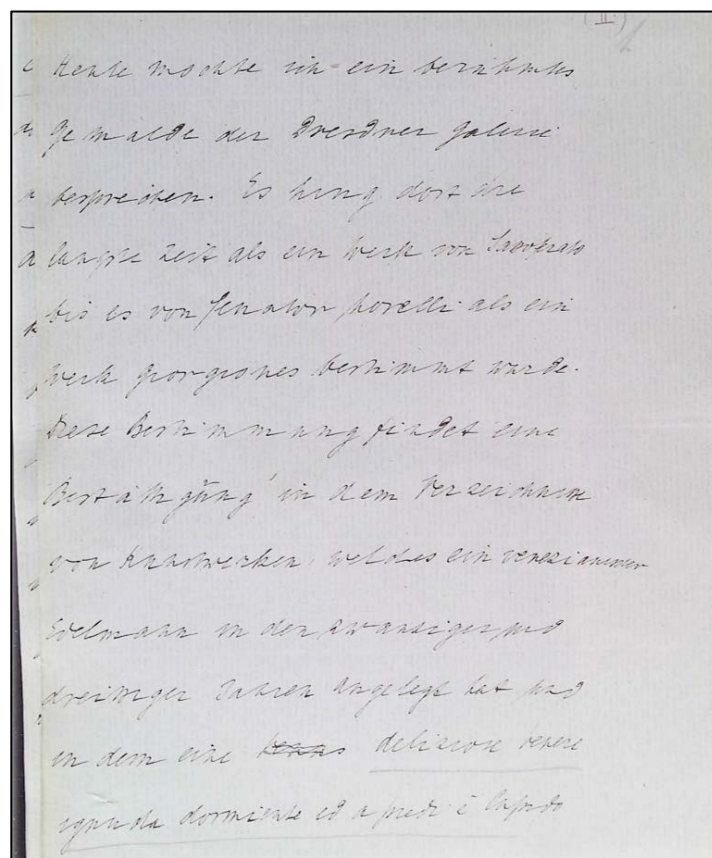 (II.) 1
Heute möchte ich ein berühmtes
Gemälde der Dresdner Galerie
besprechen. Es hing dort die
längste Zeit als ein Werk von Sassoferrato
bis es von Senator Morelli als ein
Werk Giorgiones bestimmt wurde.
Diese Bestimmung findet eine
Bestätigung in dem Verzeichnisse
von Kunstwerken, welches ein venezianischer
Edelmann in den zwanziger und
dreissiger Jahren angelegt hat und
in dem eine Venus deliziose Venere
ignuda dormiente ed a piedi è Cupido